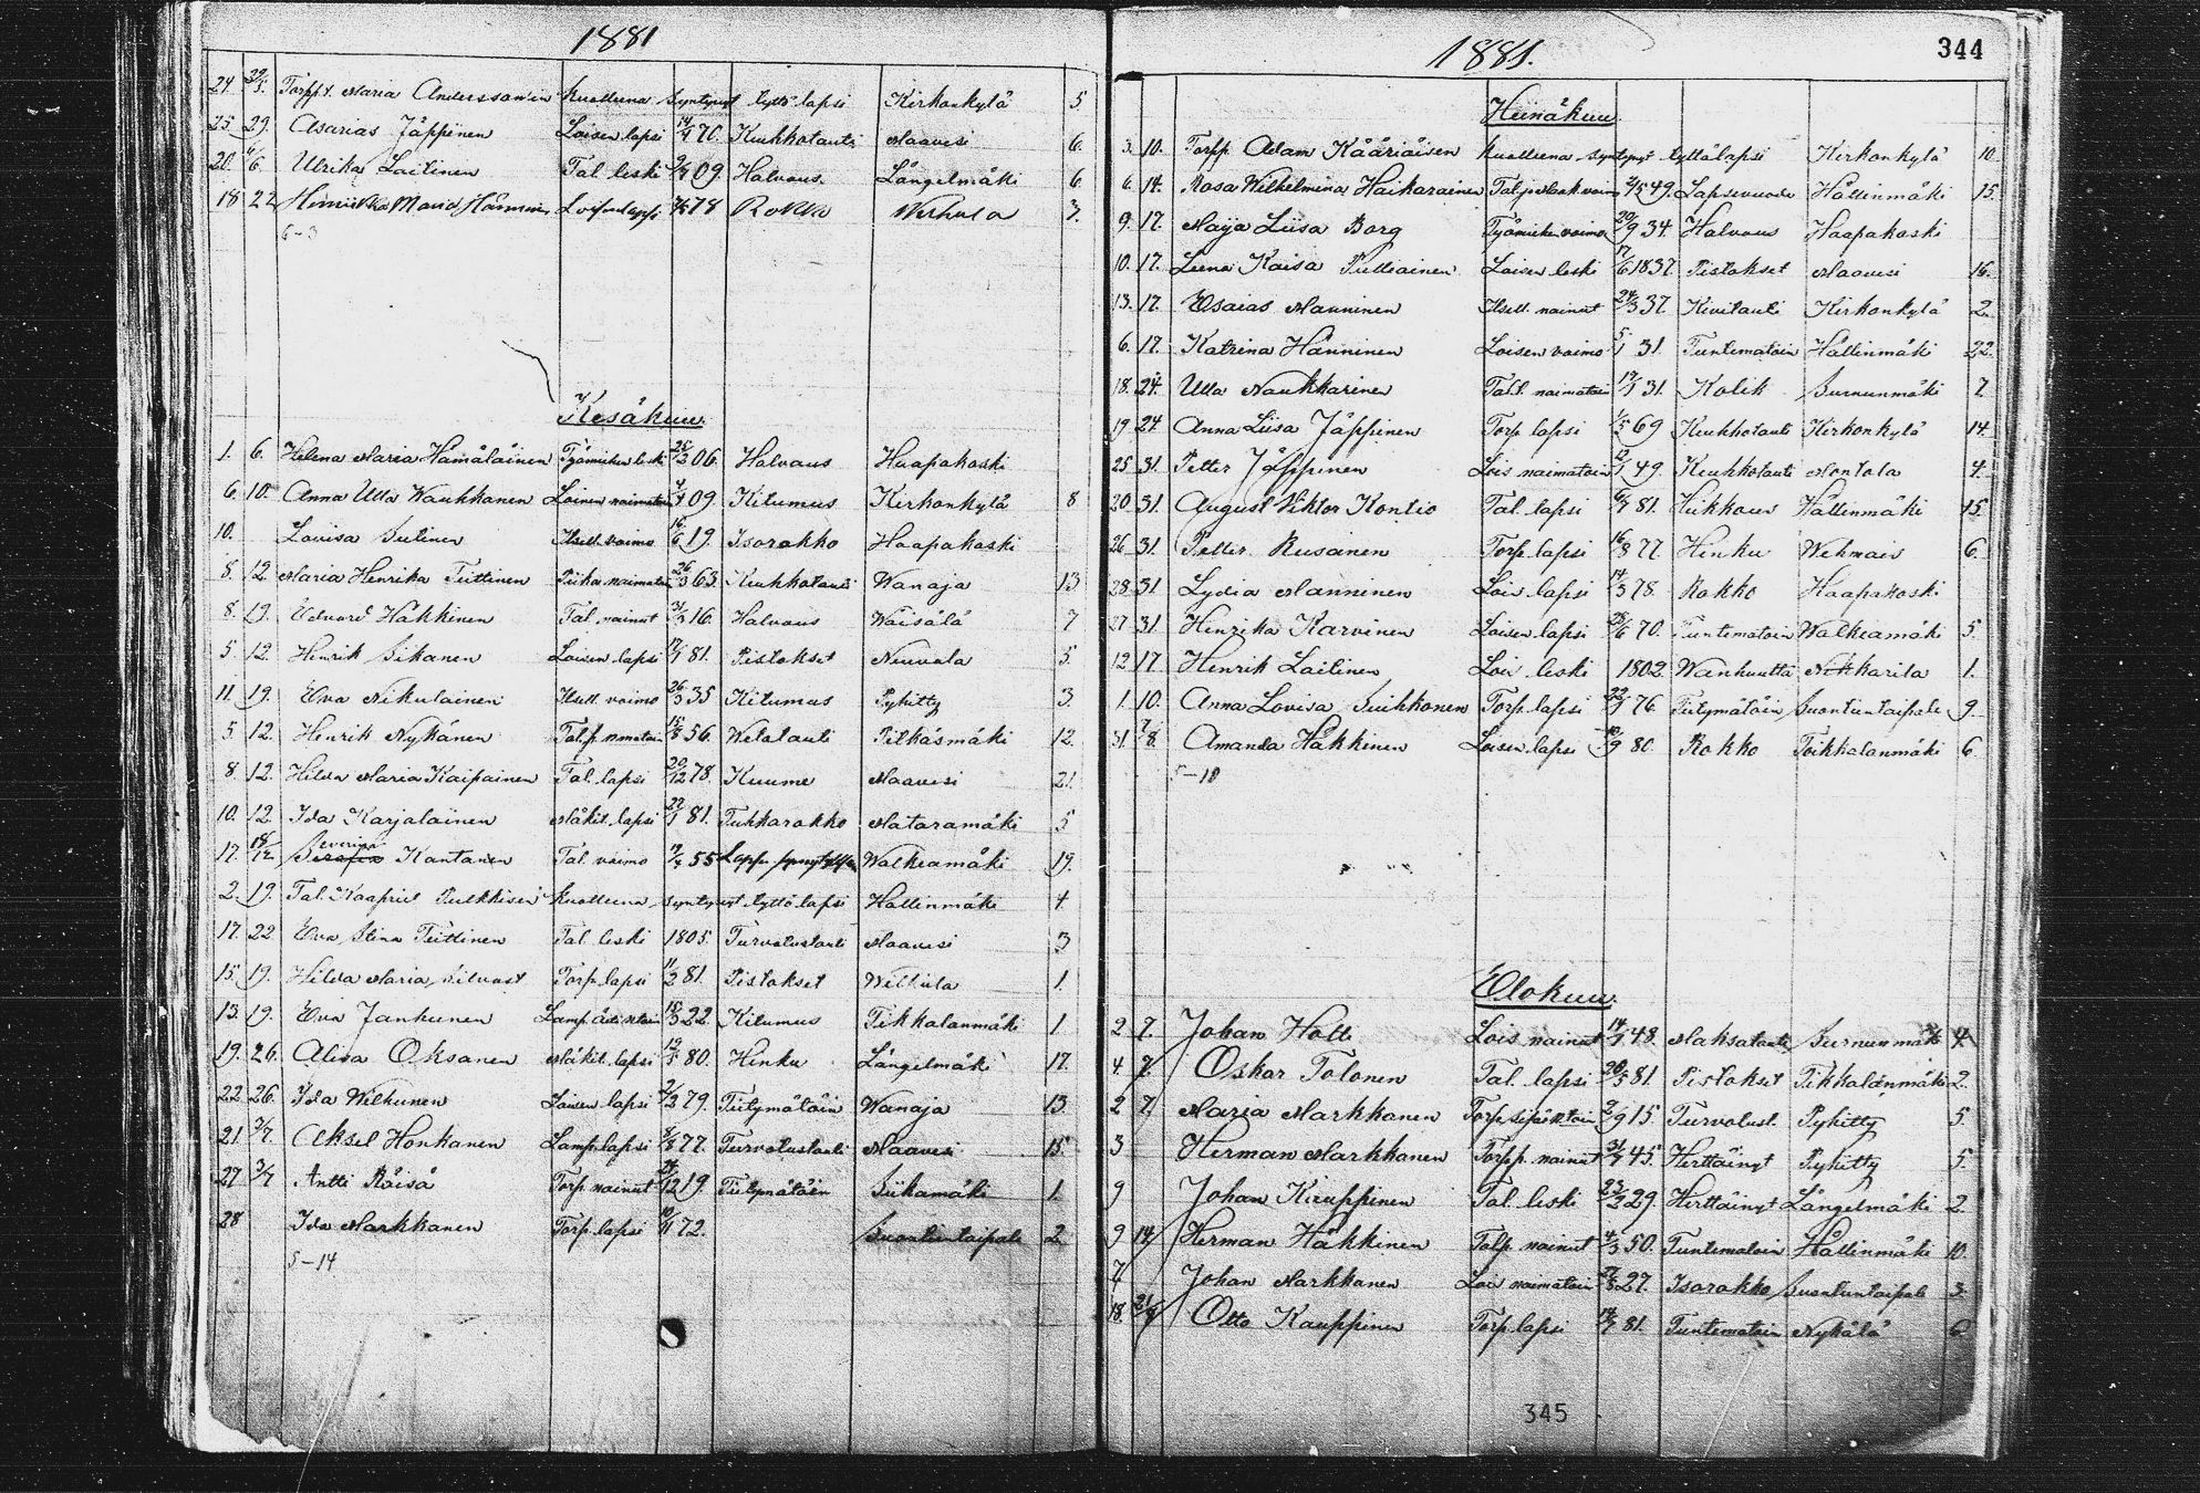 1881
24 29/5. Torpp. t. Maria Anderssonin Kuolleena syntynyt tyttölapsi Kirkonkylä 5
25 29. Asarias Jäppinen Loisen lapsi 14/1 70. Keuhkotauti Maavesi 6.
20. 6/6 Ulrika Laitinen Tal. leski 09. Halvaus. Längelmäki 6
18 22 Maria Hänninen 78 Rokko 3.
6-3
Kesäkuu.
1. 6. Helena Maria Hämäläinen Työmiehen leski 06. Halvaus Haapakoski
6. 10. Anna Ulla Kauhkanen Loinen naimatoin 09. Kitumus Kirkonkylä 8
10. Lovisa Sutinen Itsell. vaimo 16/6 19. Isorokko Haapakoski
8. 12. Maria Henrika Tiittinen Piika naimatoin 26/3 63. Keuhkotauti Wanaja 13
8. 19. Edvard Häkkinen Tal. nainut 31/3 16. Halvaus Wäisälä 7
5. 12. Henrik Sikanen Loisen lapsi 81. Pistokset Neuvola 5.
11. 19. Eva Nikulainen Itsell. vaimo 26/3 35 Kitumus Pyhitty 3.
5. 12. Henrik Nykänen 56. Welatauti Pitkäsmäki 12.
8. 12. Hilda Maria Kaipainen Tal. lapsi 20/12 78. Kuume Maavesi 21.
10. 12. Ida Karjalainen Mäkit. lapsi 22/1 81. Tuhkarokko Mataramäki 5
17. Severina Kantanen Tal. vaimo 55 Walkeamäki 19.
2. 19. Tal. Kaapriel Pulkkisen Kuolleena syntynyt tyttölapsi Hällinmäki 4.
17. 22 Eva Stina Tiittinen Tal. leski 1805. Turvotustauti Maavesi 3
15. 19. Hilda Maria Silvast Torp. lapsi 11/2 81. Pistokset Wiltula 1.
13. 19. Eva Jankunen 15/3 22. Kitumus Tikkalanmäki 1
19. 26. Alina Oksanen Mäkit. lapsi 80. Hinku Längelmäki 17.
22. 26. Ida Wilkunen Loisen lapsi 79. Tiitymätöin Wanaja 13.
21. 3/7. Aksel Honkanen Lamp. lapsi 8/8 77. Turvotustauti Maavesi 15.
27 3/7 Antti Räisä Torp. nainut 19. Tiitymätöin Siikamäki 1.
28 Ida Markkanen Torp. lapsi 10/11 72. Suontientaipale 2
5-14
1881.
344
Heinäkuu.
3. 10. Torpp. Adam Kääriäisen Kuolleena syntynyt tyttölapsi Kirkonkylä 10
6. 14. Rosa Wilhelmina Haikarainen 49. Lapsivuode Hällinmäki 15.
9. 17. Maija Liisa Borg Työmiehen vaimo 20/9 34. Halvaus Haapakoski
10. 17. Leena Kaisa Pulliainen Loisen leski 17/6 1837. Pistokset Maavesi 16.
13. 17. Esaias Manninen Itsell. nainut 24/3 37. Kivitauti Kirkonkylä 2
6. 17. Katrina Hänninen Loisen vaimo 5/1 31. Tuntematoin Hällinmäki 22.
18. 24. Ulla Naukkarinen Tal. t. naimatoin 31. Kolik Surnunmäki 7.
19 24 Anna Liisa Jäppinen Torp. lapsi 1/5 69 Keuhkotauti Kirkonkylä 14
25 31. Petter Jäppinen Lois naimatoin 49. Keuhkotauti Montola 4.
20 31. August Viktor Kontio Tal. lapsi 6/7 81. Heikkous Hällinmäki 15
26 31. Petter Rusanen Torp. lapsi 16/8 77 Hinku Wehmais 6.
28 31 Lydia Manninen Lois lapsi 14/3 78. Rokko Haapakoski
27 31. Henrika Karvinen Loisen lapsi 28/6 70. Tuntematoin Walkeamäki 5.
12 17. Henrik Laitinen Lois leski 1802. Wanhuutta Nikkarila 1.
1. 10. Anna Lovisa Suihkonen Torp. lapsi 22/1 76. Tiitymätöin Suontientaipale 9
31. 7/8. Amanda Häkkinen Loisen lapsi 80. Rokko Toikkalanmäki 6
5-10
Elokuu.
2 7. Johan Holti Lois nainut 48. Maksatauti Surnunmäki 4.
4. 7. Oskar Tolonen Tal. lapsi 20/5 81. Pistokset Tikkalanmäki 2.
2 7 Maria Markkanen 2/9 15. Turvotust. Pyhitty 5.
3 Herman Markkanen Torpp. nainut 45. Herttäinyt Pyhitty 5.
9 Johan Kiruppinen Tal. leski 23/2 29. Herttäinyt Längelmäki 2
9 14 Herman Häkkinen Talp. nainut 4/3 50. Tuntematoin Hällinmäki 10.
7 Johan Markkanen Lois naimatoin 27. Isorokko Suontientaipale 3.
18. Otto Kauppinen Torp. lapsi 81. Tuntematoin Nykälä 6
345